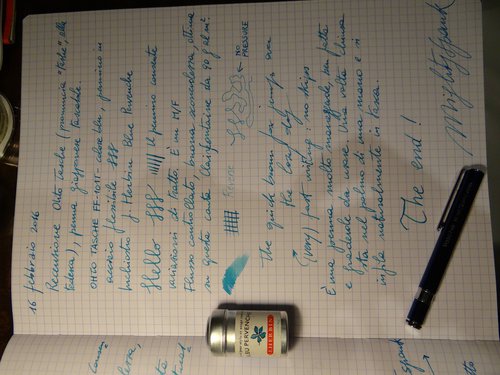 16 febbraio 2016
Recensione Ohto Tasche (pronuncia "Tashe", alla
tedesca), penna giapponese tascabile.
OHTO TASCHE FF-10T- colore blu, pennino in
acciaio flessibile. SSS
Inchiostro J Herbin Bleu Pervenche
Hello SSS Il pennino consente
variazioni di tratto. È un M/F
Flusso controllato, buona scorrevolezza, ottima
su questa carta Clairefontaine da 90 g al m².
NO
PRESSURE
The quick brown fox jumps over
the lazy dog
(very) fast writing: no skips
È una penna molto maneggevole, ben fatta
e gradevole da usare. Una volta chiusa
sta nel palmo di una mano e si
infila naturalmente in tasca.
The end!
Mightyspank
BLEU PERVENCHE
J. HERBIN